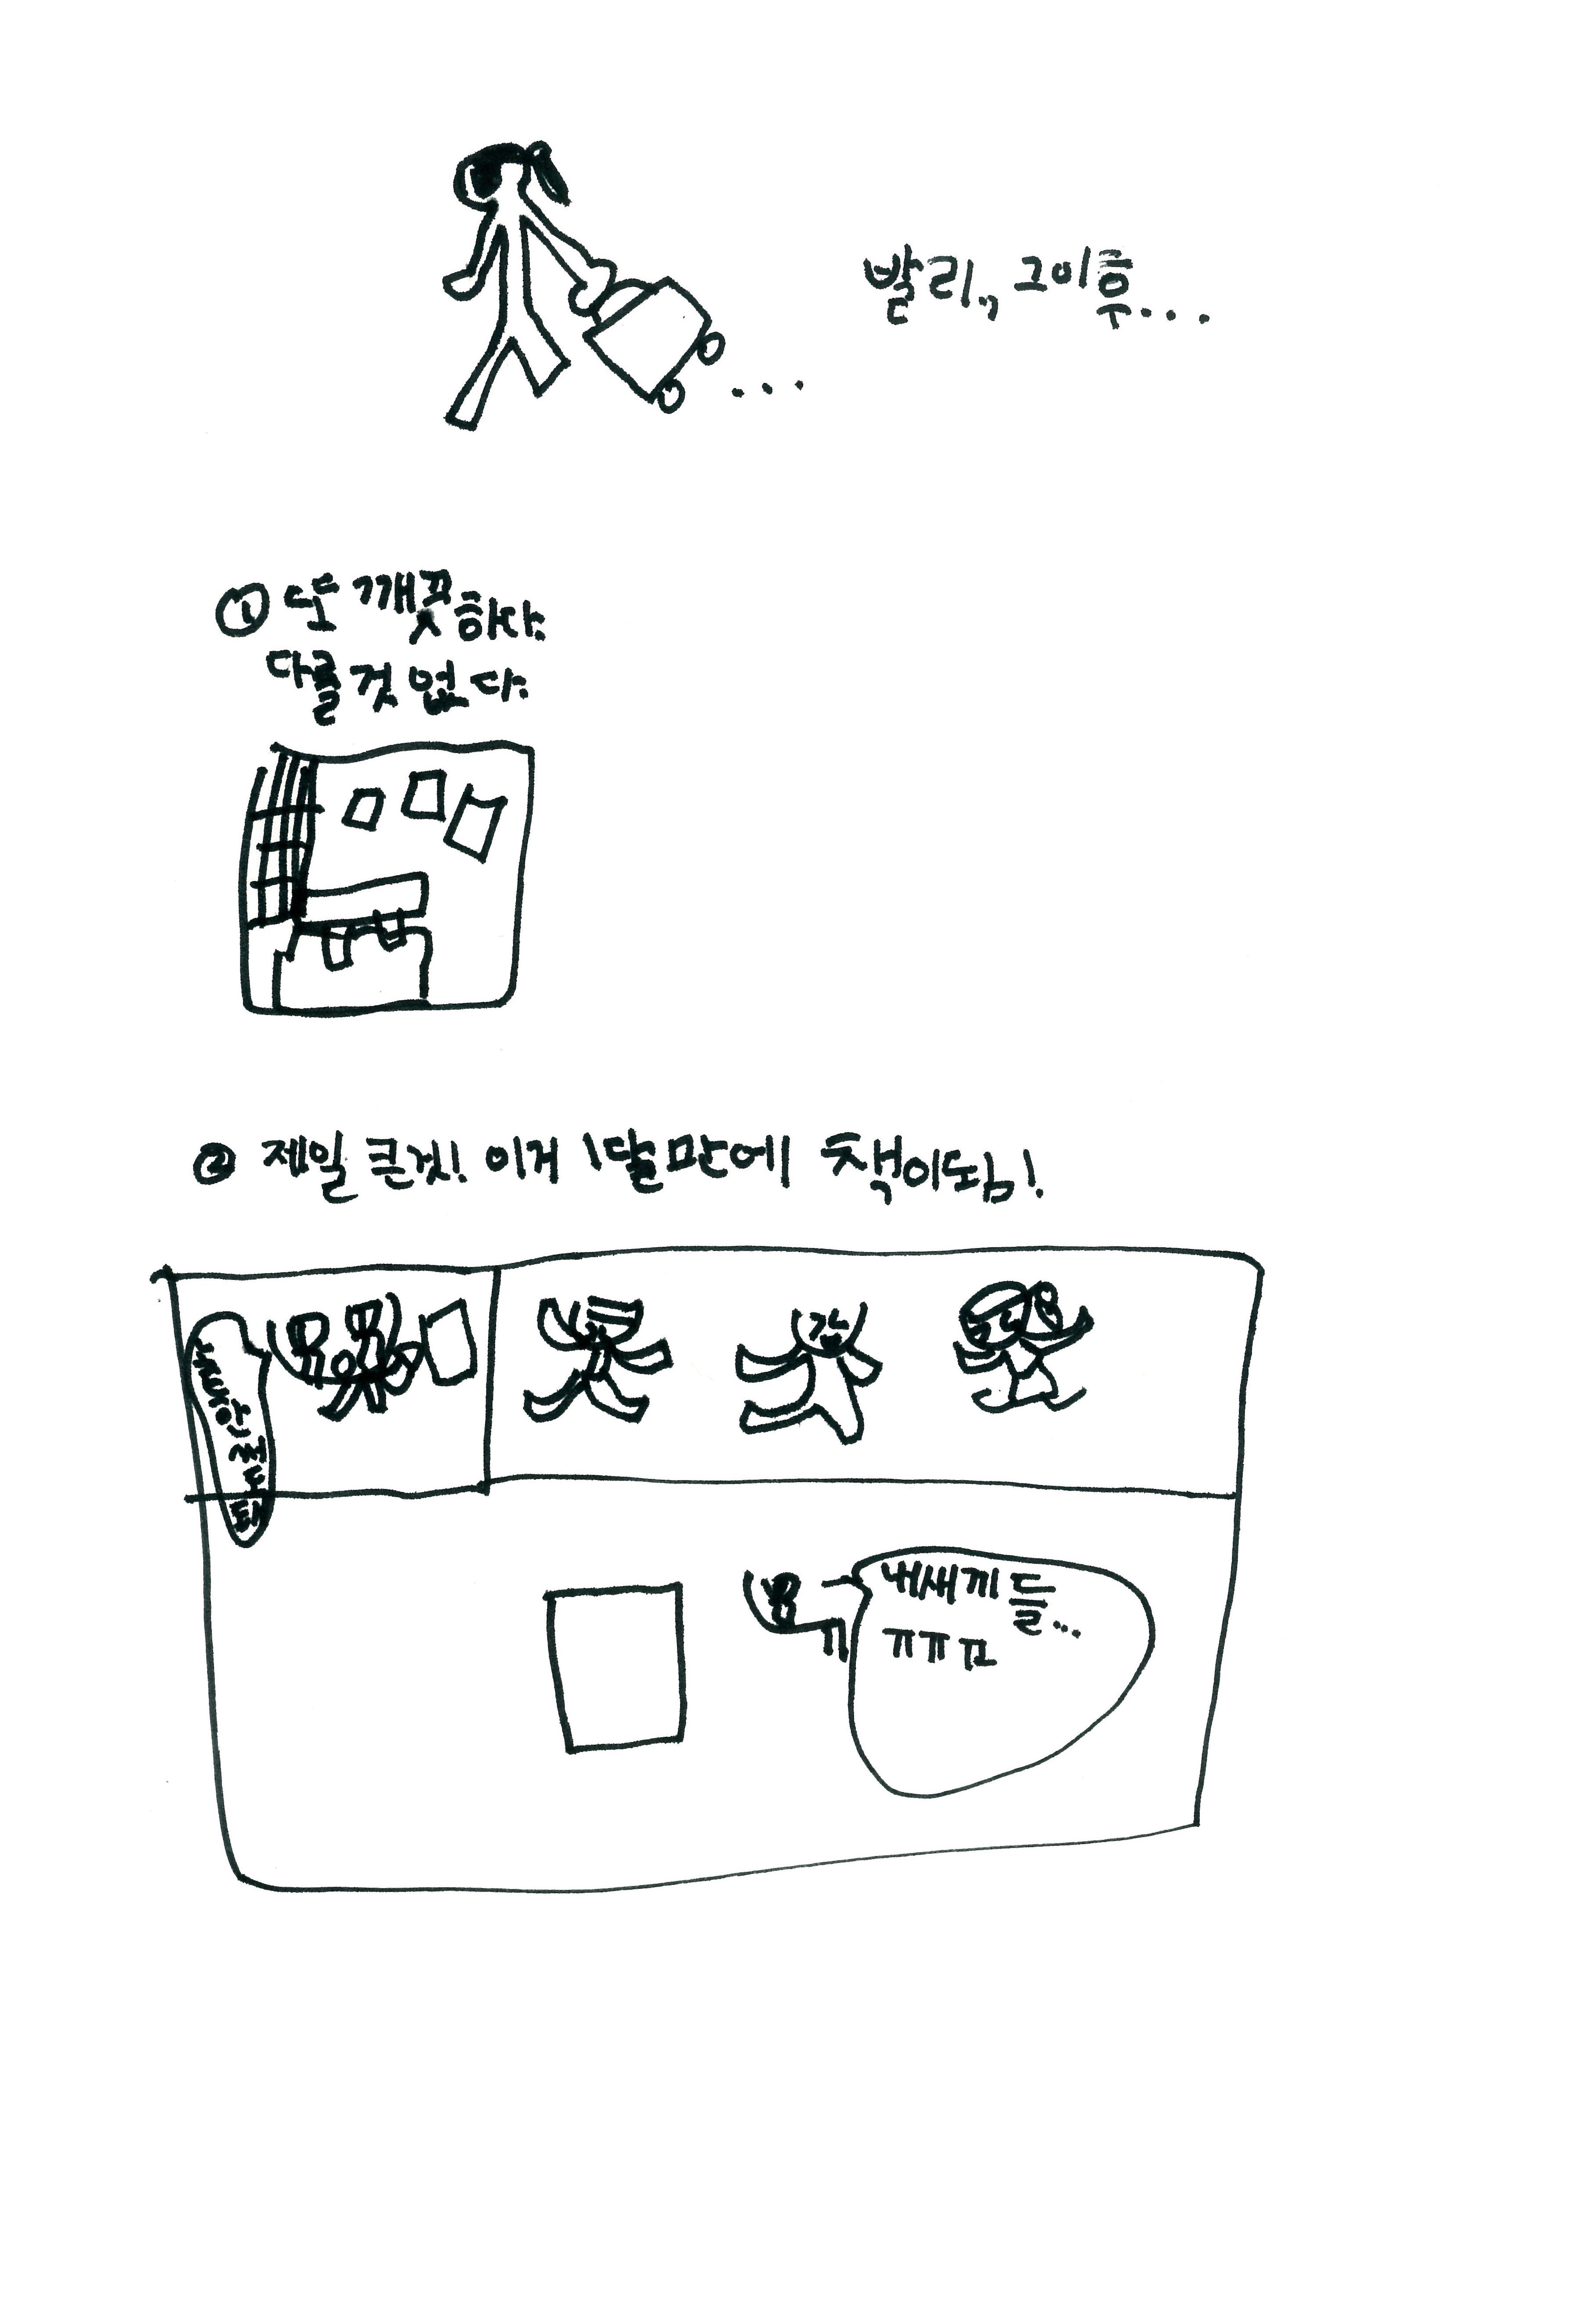 발리,, 그 이후...
① 또 깨끗하다.
다를 것 없다.
② 제일 큰것! 이게 1달만에 책이됨!
내새끼들...
ㅠㅠㅠ